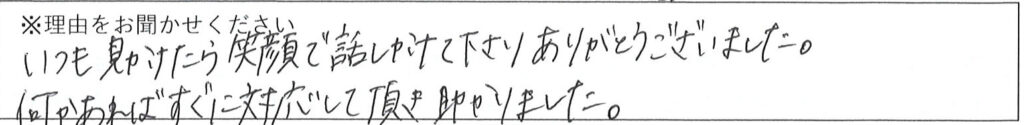 ※理由をお聞かせください
いつも見かけたら笑顔で話しかけて下さりありがとうございました。
何かあればすぐに対応して頂き助かりました。